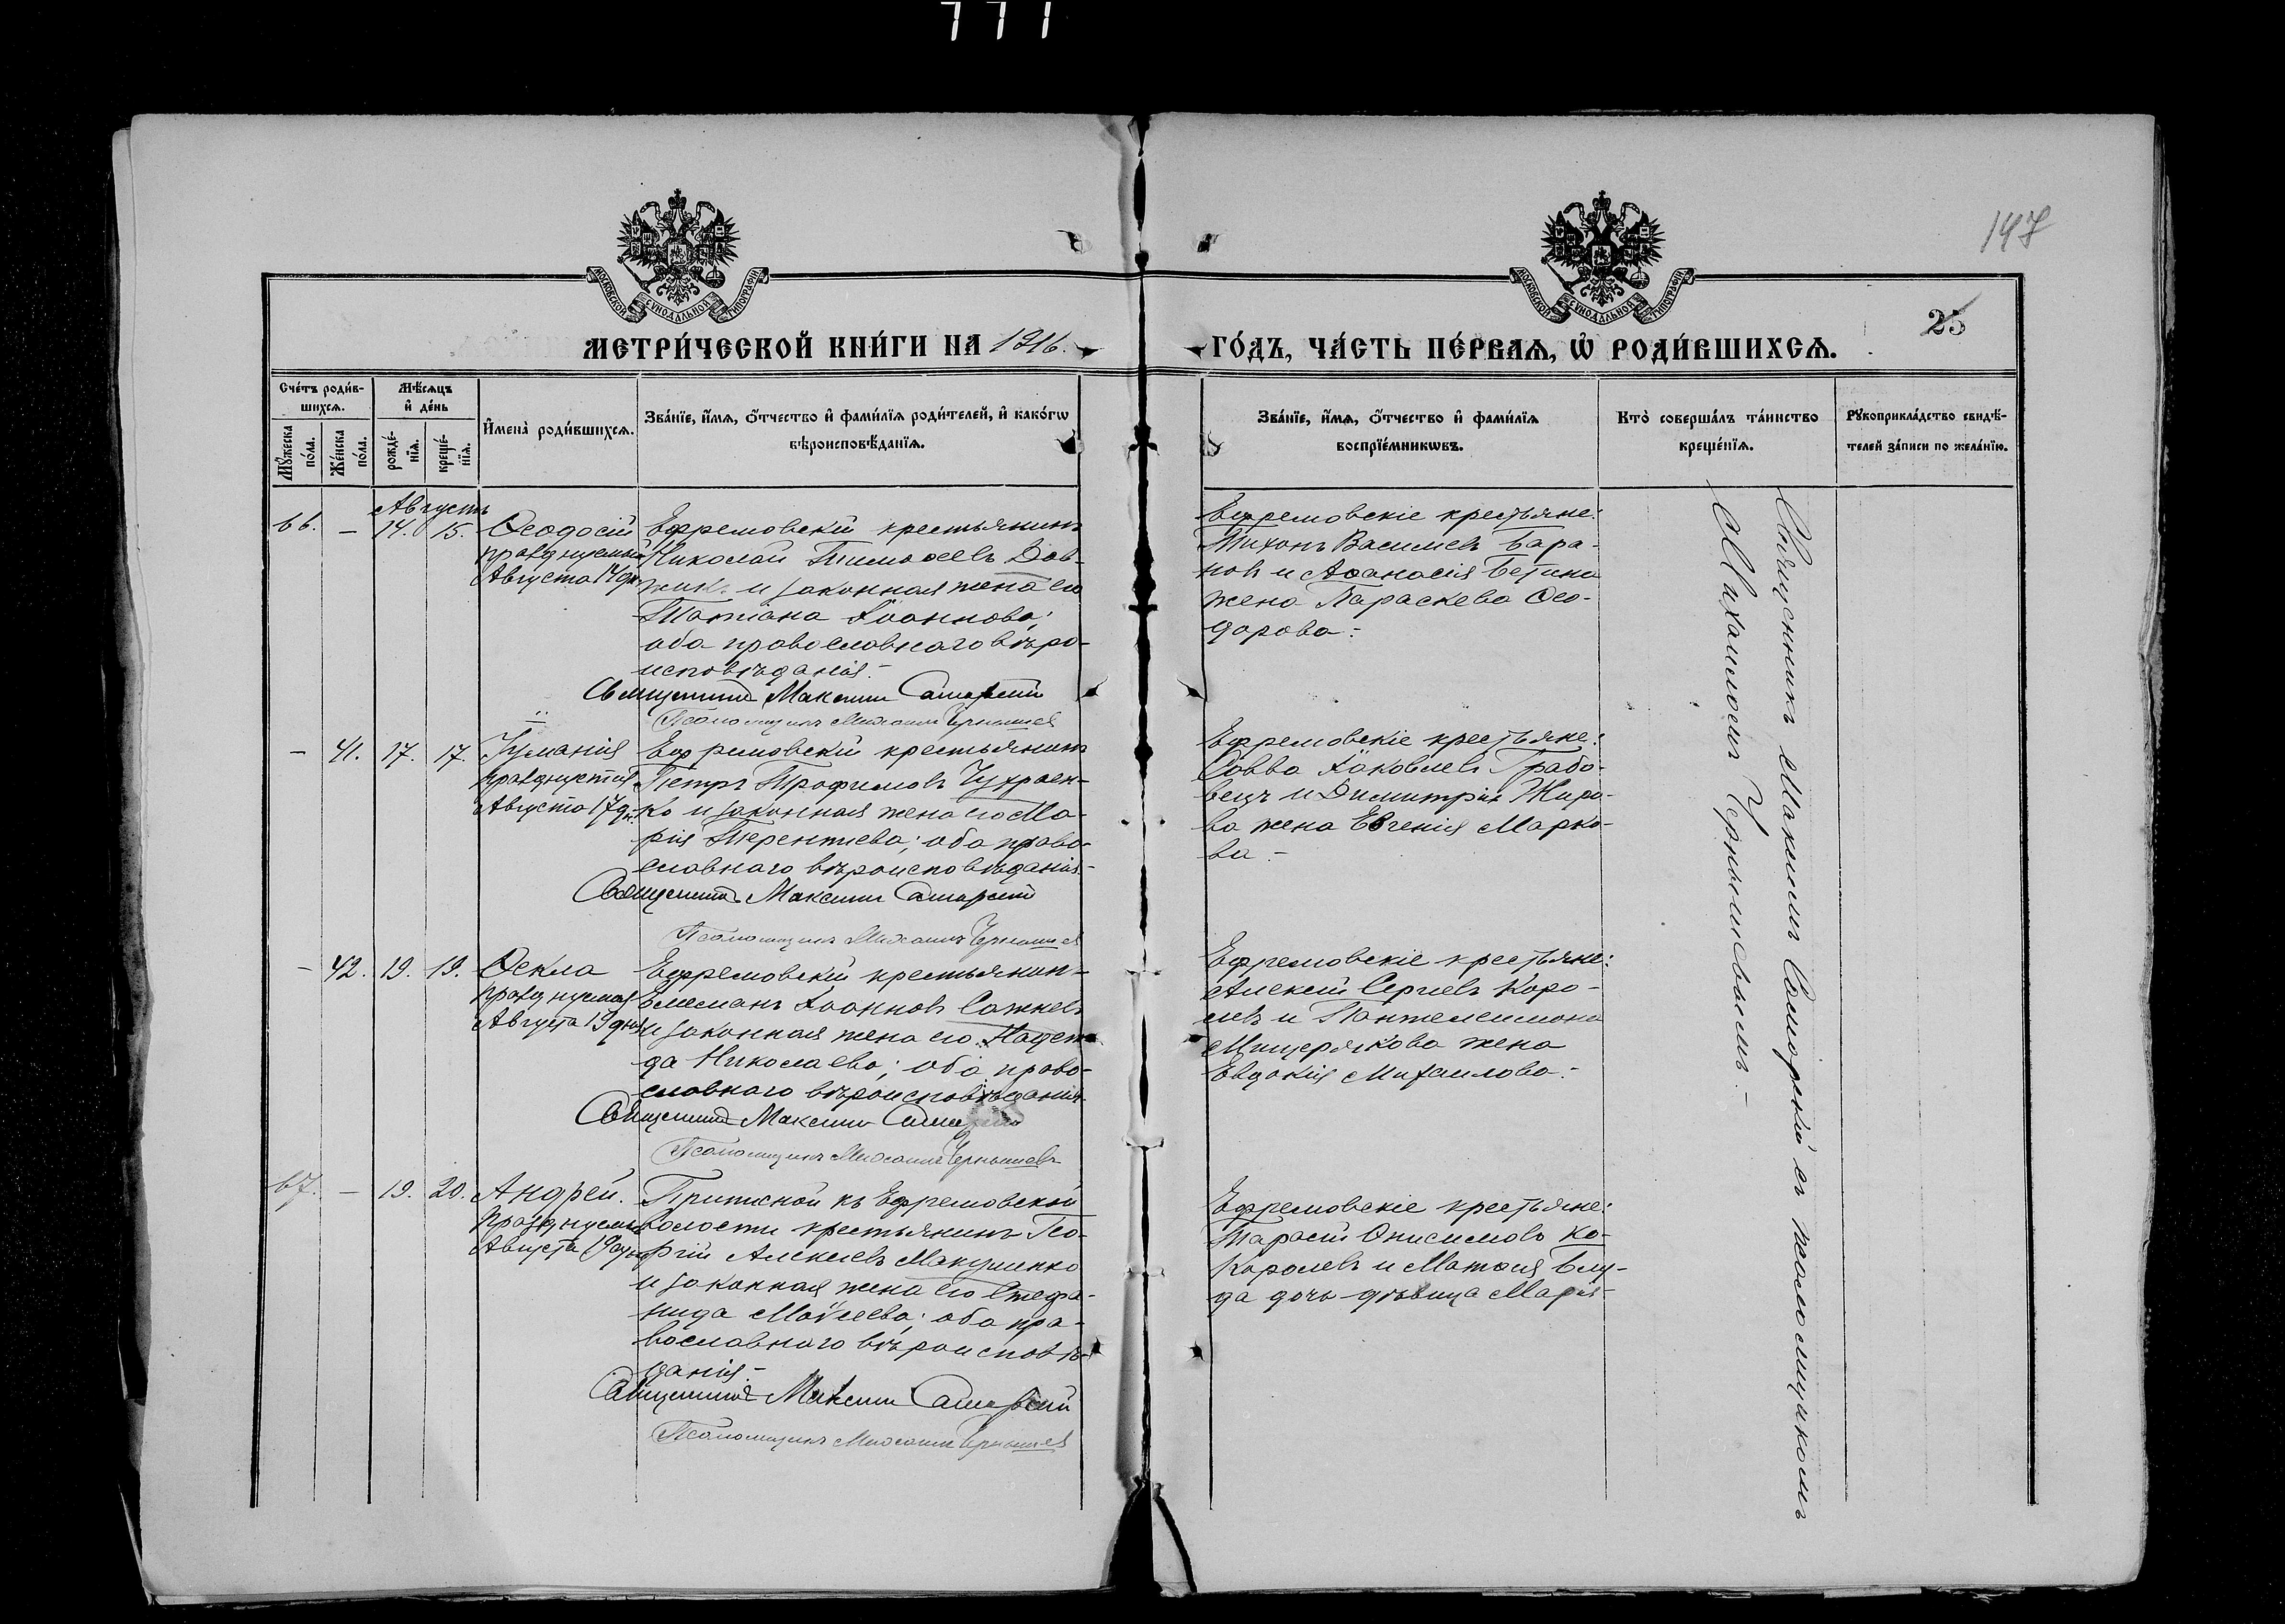 777
147
25
МОСКОВСКОЙ СѴНОДАЛЬНОЙ ТИПОГРАФІИ
МОСКОВСКОЙ СѴНОДАЛЬНОЙ ТИПОГРАФІИ
МЕТРИ́ЧЕСКОЙ КНИ́ГИ НА 1916. ГО́ДЪ, ЧА́СТЬ ПЕ́РВАѦ, Ѽ РОДИ́ВШИХСѦ.
Сче́тъ роди́в-
шихсѧ.
Мꙋ́жеска по́ла.
Же́нска по́ла.
Мѣ́сѧцъ и҆ де́нь
рожде́-нїѧ.
креще́-нїѧ.
И҆мена̀ роди́вшихсѧ.
Зва́нїе, и҆́мѧ, о҆́тчество и҆ фами́лїѧ роди́телей, и҆ како́гѡ
вѣроисповѣ́данїѧ.
Зва́нїе, и҆́мѧ, о҆́тчество и҆ фами́лїѧ
воспрїе́мникѡвъ.
Кто̀ соверша́лъ та́инство
креще́нїѧ.
Рꙋкоприкла́дство свидѣ́-
телей за́писи по жела́нїю.
Августъ
66. – 14. 15. Ѳеодосій
празднуемый
Августа 14 дн.
Ефремовскій крестьянинъ
Николай Тимоѳеевъ Дов-
жик. и законная жена его
Татіана Іоаннова;
оба православнаго вѣро-
исповѣданія.-
Священникъ Максимъ Самарскій
Псаломщикъ Михаилъ Чернышевъ
Ефремовскіе крестьяне:
Тихонъ Василіевъ Бара-
новъ и Аѳанасія Бетина
жена Параскева Ѳео-
дорова:-
– 41. 17. 17. Іуліанія
Августа 17 дн.
Ефремовскій крестьянинъ
Петръ Трофимовъ Чухраен-
ко и законная жена его Ма-
рія Терентіева; оба право-
славнаго вѣроисповѣданія.-
Священникъ Максимъ Самарскій
Псаломщикъ Михаилъ Чернышевъ
Ефремовскіе крестьяне:
Савва Іаковлевъ Грабо-
вецъ и Димитрія Жиро-
ва жена Евгенія Марко-
ва.-
– 42. 19. 19. Ѳекла
празднуемая
Августа 19 дня
Ефремовскій крестьянинъ
Емеліанъ Іоанновъ Сажневъ
и законная жена его Надеж-
да Николаева; оба право-
славнаго вѣроисповѣданія.
Священникъ Максимъ Самарскій
Псаломщикъ Михаилъ Чернышевъ
Ефремовскіе крестьяне:
Алексій Сергіевъ Коро-
левъ и Пантелеимона
Мищерякова жена
Евдокія Михаилова:-
67. – 19. 20. Андрей.
Августа 19 дн.
Приписной къ Ефремовской
волости крестьянинъ Гео-
ргій Алексіевъ Макушенко
и законная жена его Стефа-
нида Моѵсеева; оба пра-
вославнаго вѣроисповѣ-
данія.-
Священникъ Максимъ Самарскій
Псаломщикъ Михаилъ Чернышевъ
Ефремовскіе крестьяне:
Тарасій Онисимовъ Ко-
Королевъ и Матѳія Блу-
да дочь дѣвица Марія.-
Священникъ Максимъ Самарскій съ псаломщикомъ
Михаиломъ Чернышевымъ.-